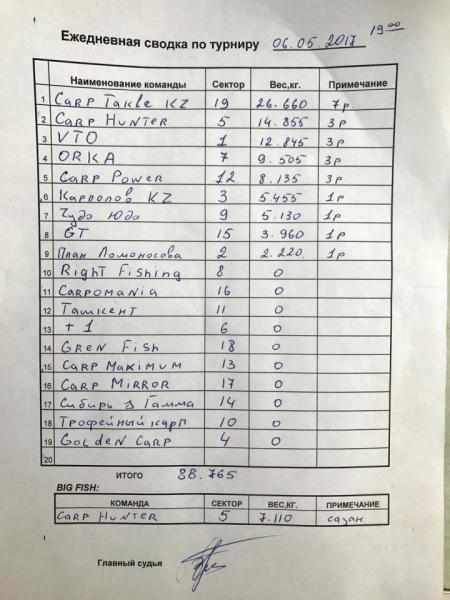 19 00
Ежедневная сводка по турниру 06.05.2017
Наименование команды Сектор Вес,кг. Примечание
1 Carp Takle KZ 19 26.660 7р.
2 Carp Hunter 5 14.855 3р
3 VTO 1 12.845 3р
4 ORKA 7 9.505 3р
5 Carp Power 12 8.135 3р
6 Карполов KZ 3 5.455 1р
7 Чудо Юдо 9 5.130 1р
8 GT 15 3.960 1р
9 План Ломоносова 2 2.220 1р
10 Right Fishing 8 0
11 Carpomania 16 0
12 Ташкент 11 0
13 + 1 6 0
14 Gren Fish 18 0
15 Carp Maximum 13 0
16 Carp Mirror 17 0
17 Сибирь з Гамма 14 0
18 Трофейный карп 10 0
19 Golden Carp 4 0
20
ИТОГО 88.765
BIG FISH:
КОМАНДА СЕКТОР ВЕС,КГ. ПРИМЕЧАНИЕ
Carp Hunter 5 7.110 сазан
Главный судья